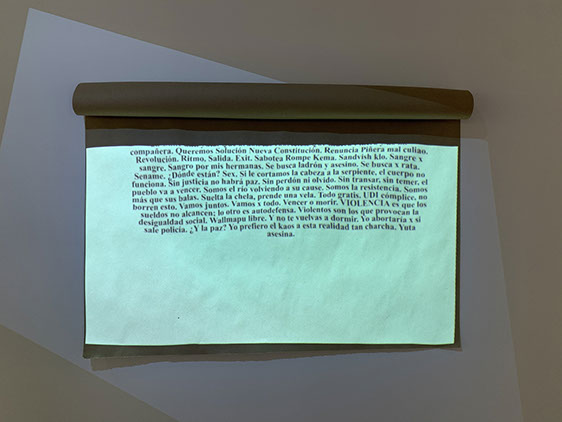 compañera. Queremos Solución Nueva Constitución. Renuncia Piñera mal culiao.
Revolución. Ritmo. Salida. Exit. Sabotea Rompe Kema. Sandvish klo. Sangre x
sangre. Sangro por mis hermanas. Se busca ladrón y asesino. Se busca x rata.
Sename. ¿Dónde están? Sex. Si le cortamos la cabeza a la serpiente, el cuerpo no
funciona. Sin justicia no habrá paz. Sin perdón ni olvido. Sin transar, sin temer, el
pueblo va a vencer. Somos el río volviendo a su cause. Somos la resistencia. Somos
más que sus balas. Suelta la chela, prende una vela. Todo gratis. UDI cómplice, no
borren esto. Vamos juntos. Vamos x todo. Vencer o morir. VIOLENCIA es que los
sueldos no alcancen; lo otro es autodefensa. Violentos son los que provocan la
desigualdad social. Wallmapu libre. Y no te vuelvas a dormir. Yo abortaría x si
sale policía. ¿Y la paz? Yo prefiero el kaos a esta realidad tan charcha. Yuta
asesina.